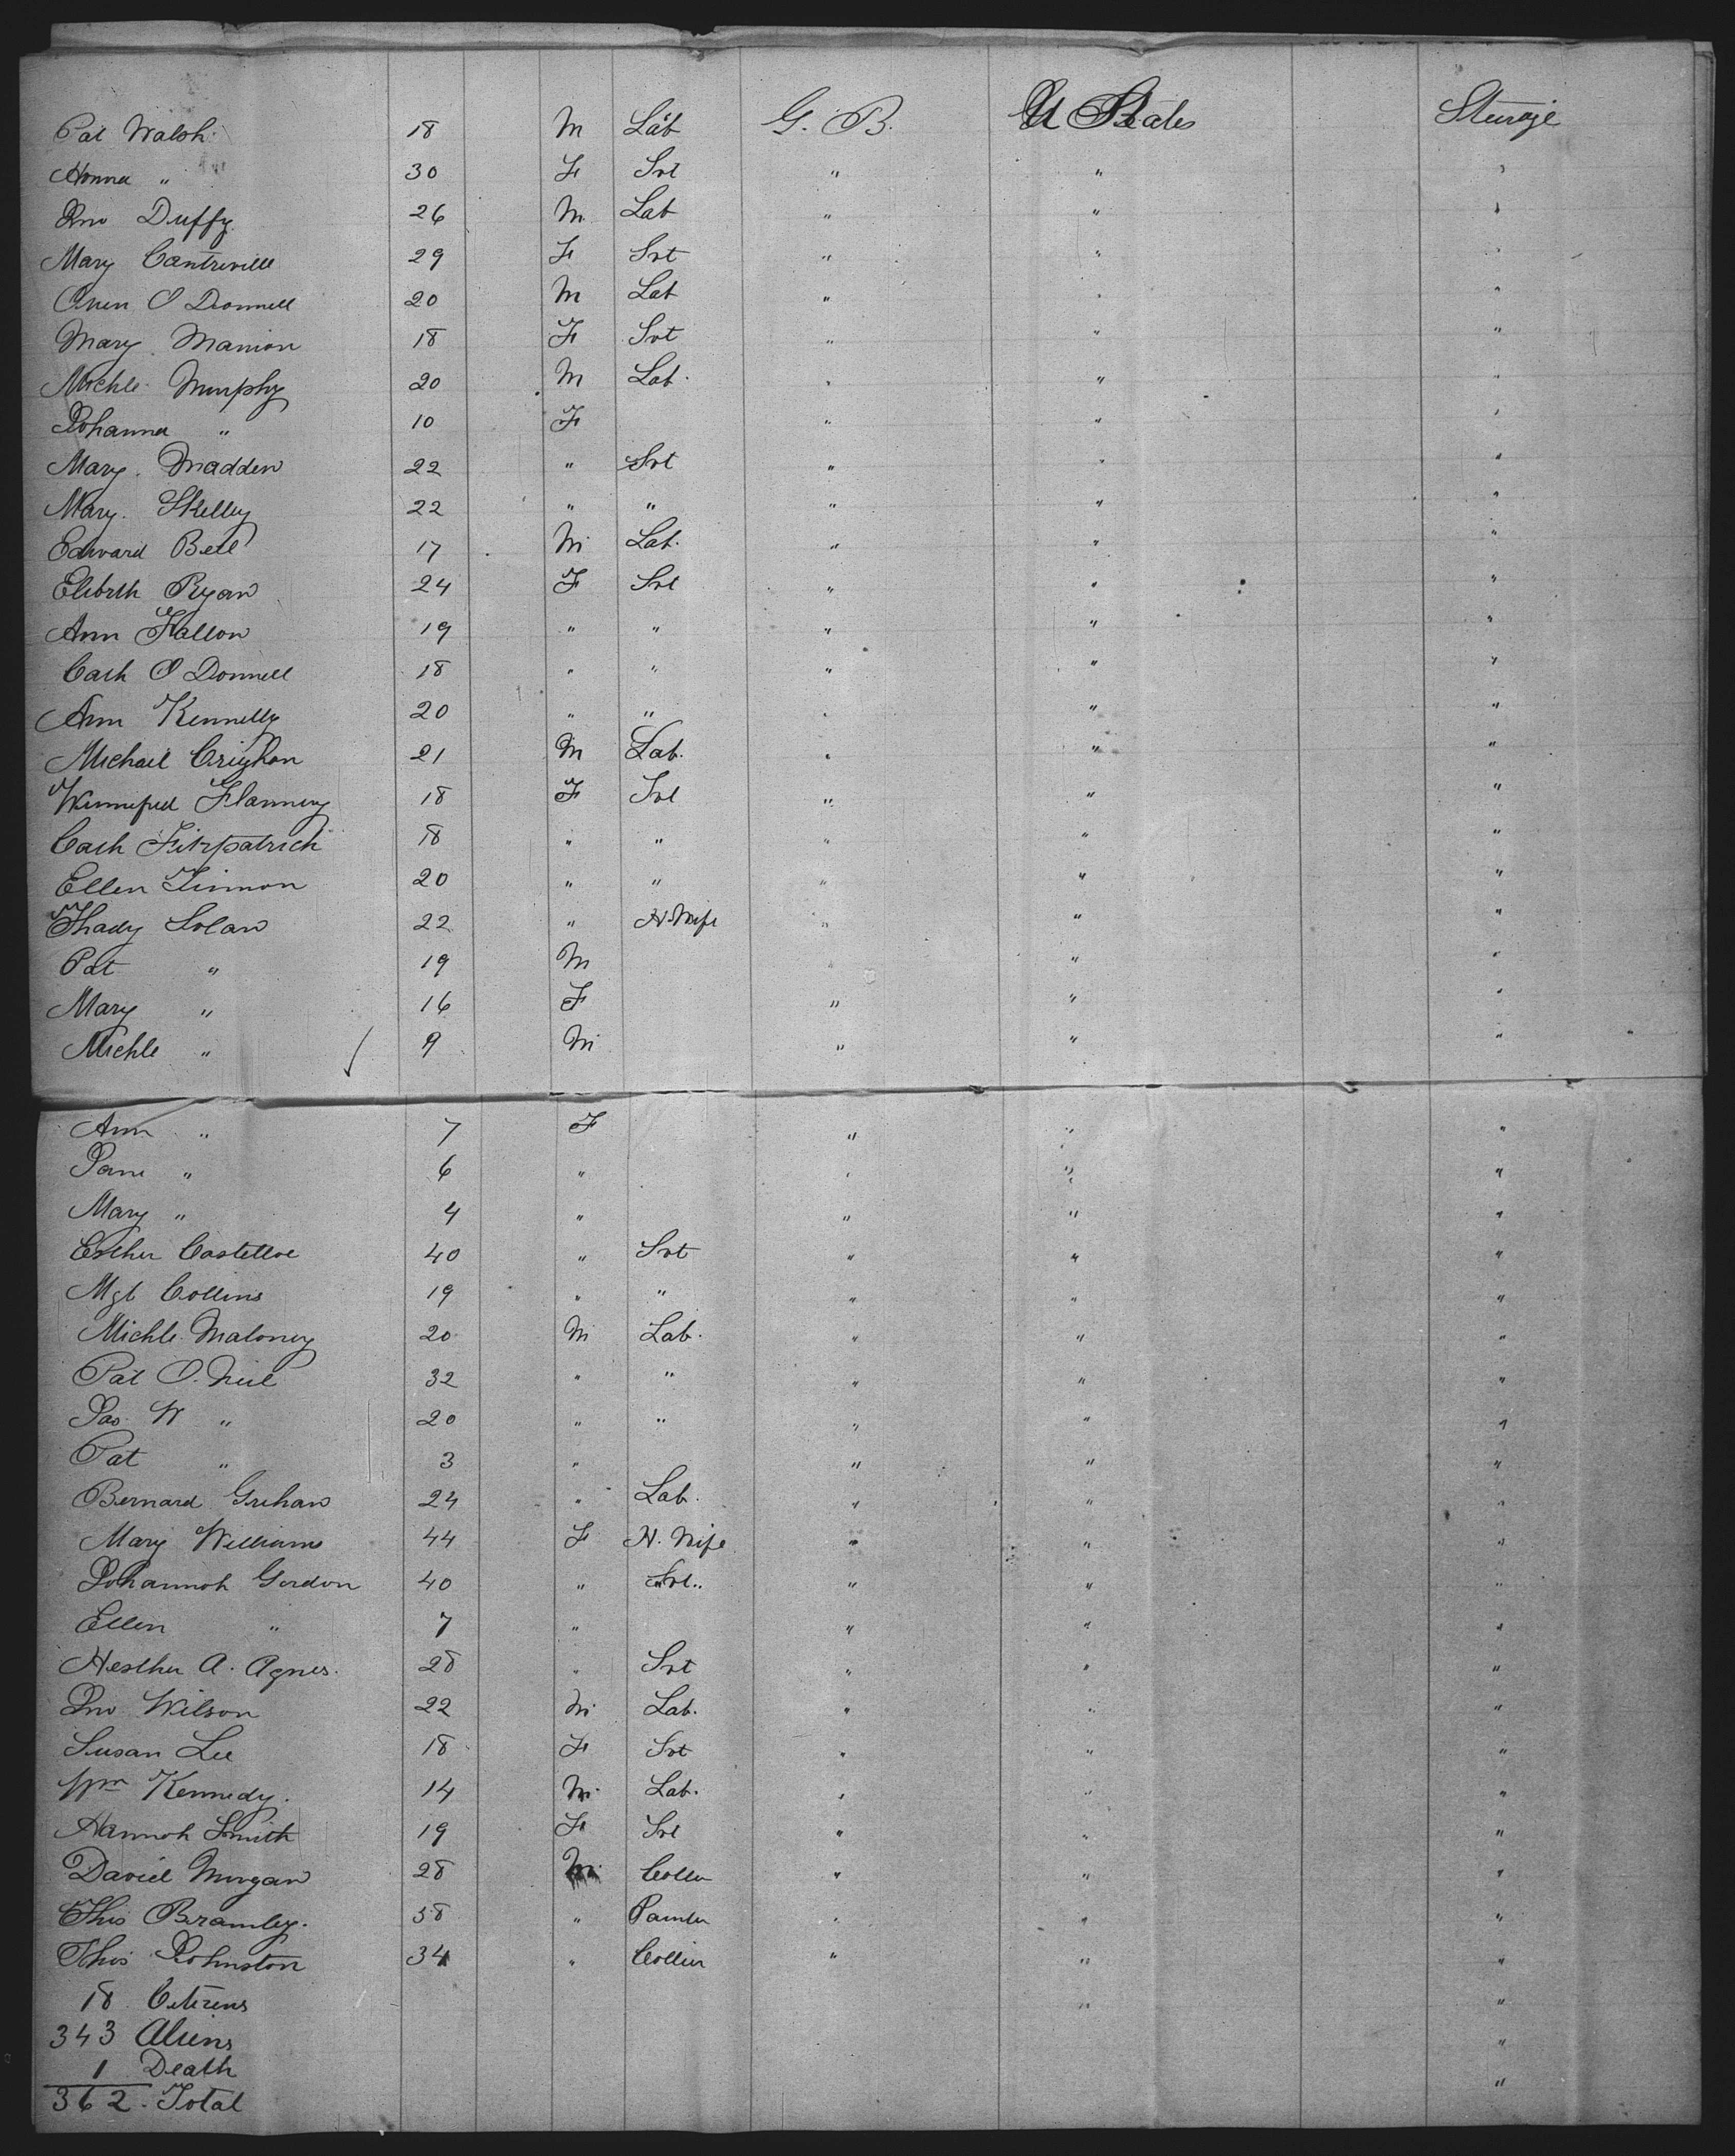 Pat Walsh 18 M Lab G. B. U States Steerage
Honna " 30 F Svt " " "
Jno Duffy 26 M Lab " " "
Mary Cantreville 29 F Svt " " "
Owen O Donnell 20 M Lab " " "
Mary Manion 18 F Svt " " "
Michle Murphy 20 M Lab. " " "
Johanna " 10 F " " "
Mary Madden 22 " Svt " " "
Mary Skelley 22 " " " " "
Edward Bell 17 M Lab. " " "
Elibsth Ryan 24 F Svt " " "
Ann Fallon 19 " " " " "
Cath O Donnell 18 " " " " "
Ann Kennelly 20 " " " " "
Michail Crighan 21 M Lab. " " "
Winnifred Flannery 18 F Svt " " "
Cath Fitzpatrick 18 " " " " "
Ellen Tinmon 20 " " " " "
Thady Solan 22 " H. Wife " " "
Pat " 19 M " " "
Mary " 16 F " " "
Michle " 9 M " " "
Ann " 7 F " " "
Jane " 6 " " " "
Mary " 4 " " " "
Esther Castelloe 40 " Svt " " "
Mgt Collins 19 " " " " "
Michle Maloney 20 M Lab. " " "
Pat O. Neil 32 " " " " "
Jas. W " 20 " " " " "
Pat " 3 " " " "
Bernard Grehan 24 " Lab. " " "
Mary Williams 44 F H. Wife " " "
Johannah Gordon 40 " Svt. " " "
Ellen " 7 " " " "
Hesther A. Agnes. 28 " Svt " " "
Jno Wilson 22 M Lab. " " "
Susan Lee 18 F Svt " " "
Wm Kennedy. 14 M Lab. " " "
Hannah Smith 19 F Svt " " "
David Morgan 28 M Collier " " "
Thos Bramley. 38 " Painter " " "
Thos Johnston 34 " Collier " " "
18 Citizens " "
343 Aliens "
1 Death
362. Total "